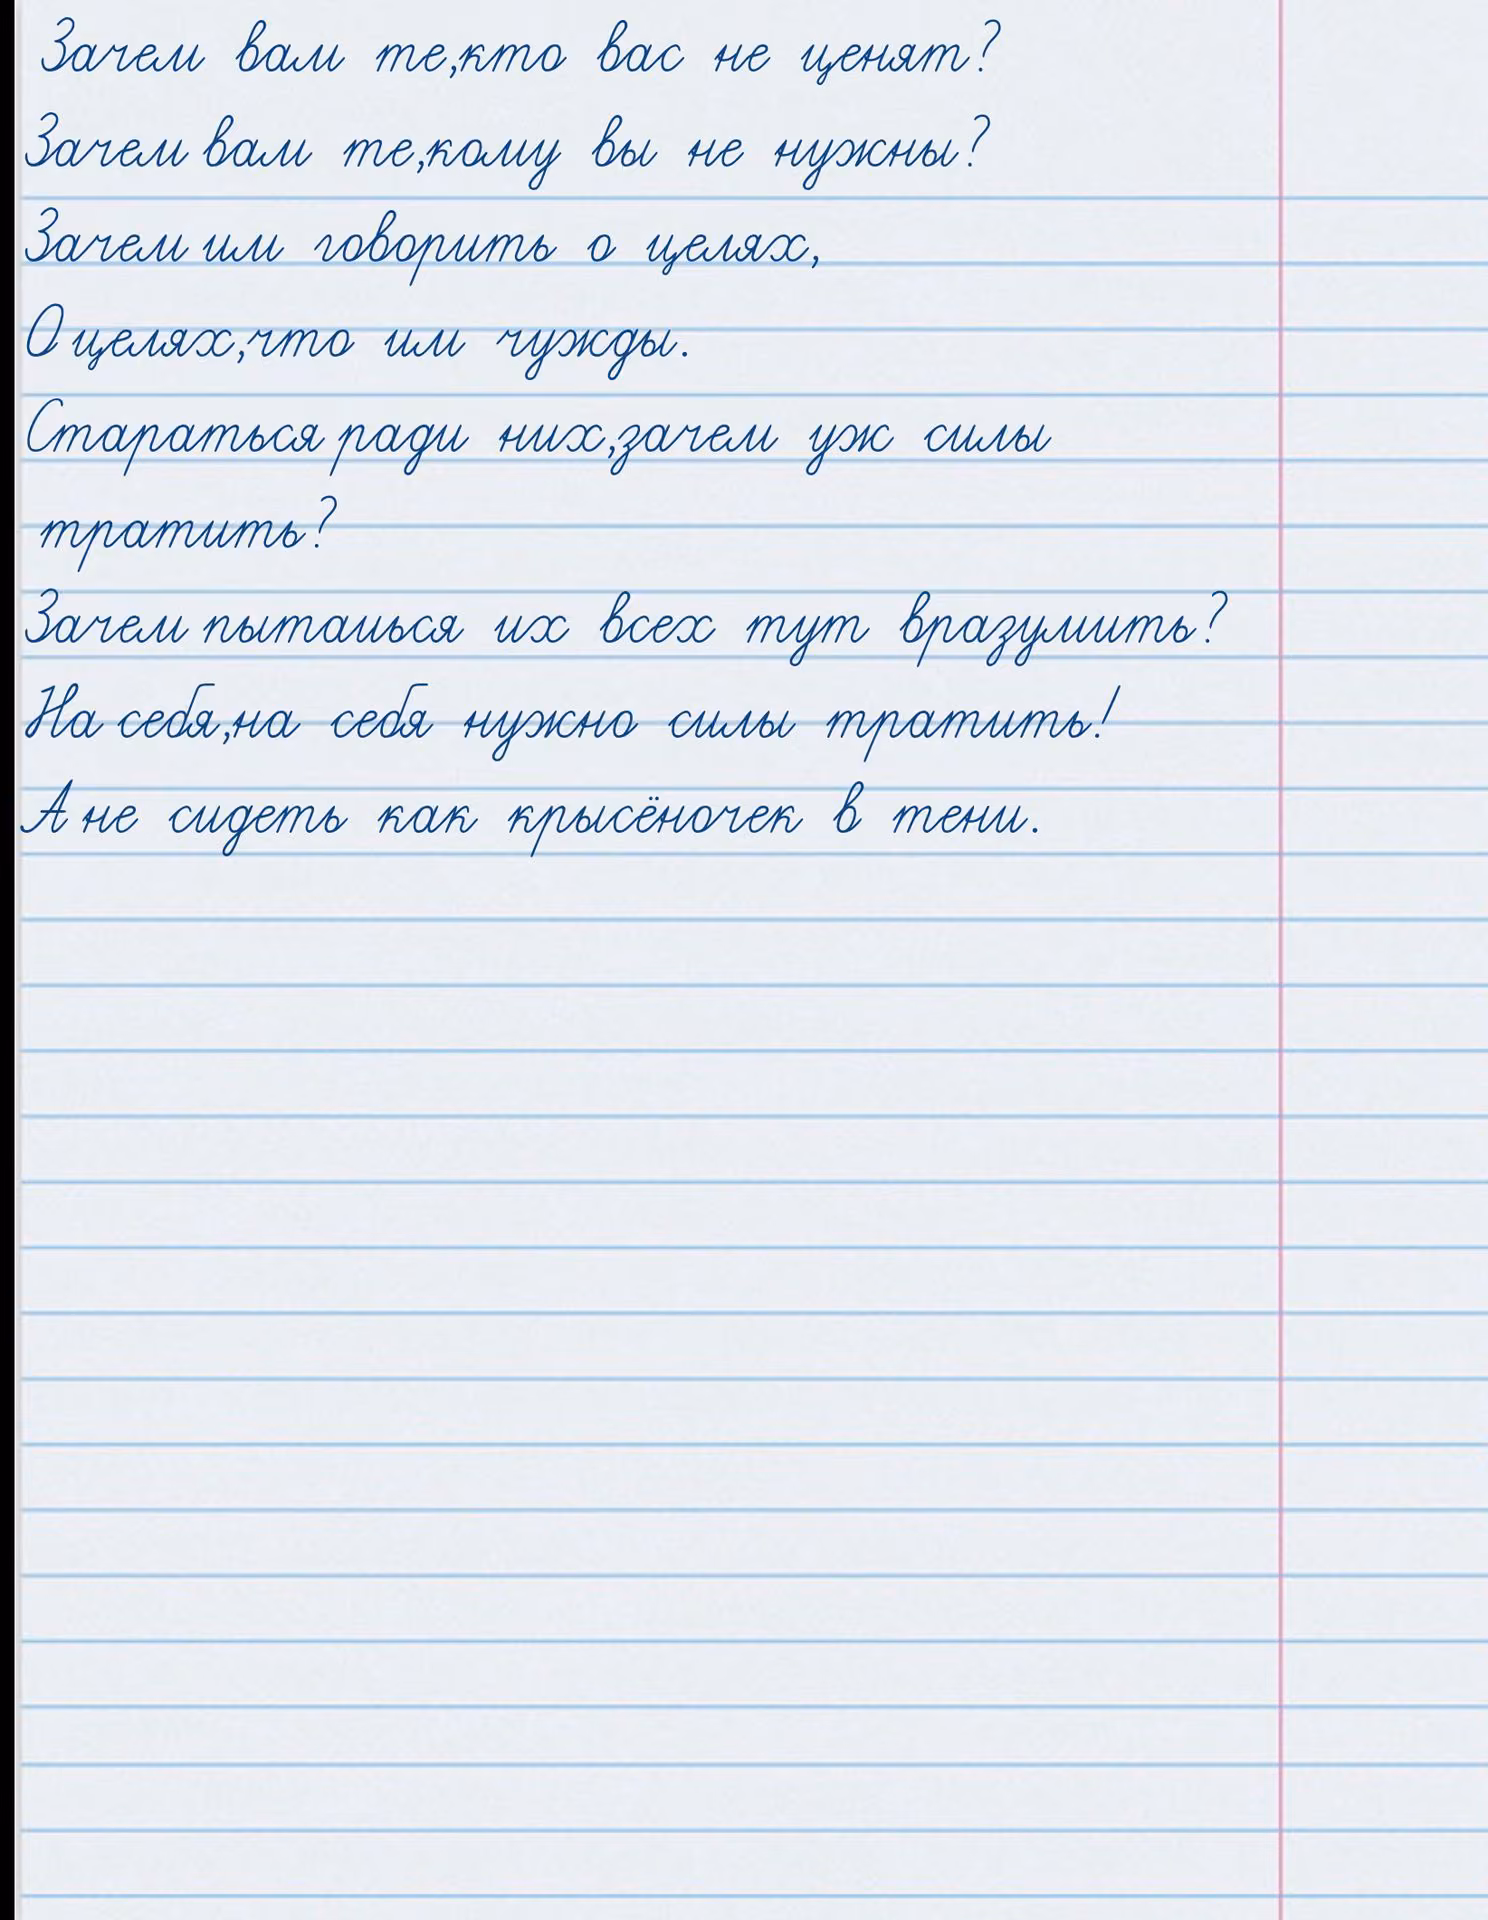 Зачем вам те,кто вас не ценят?
Зачем вам те,кому вы не нужны?
Зачем им говорить о целях,
О целях,что им чужды.
Стараться ради них,зачем уж силы
тратить?
Зачем пытаиься их всех тут вразумить?
На себя,на себя нужно силы тратить!
А не сидеть как крысёночек в тени.